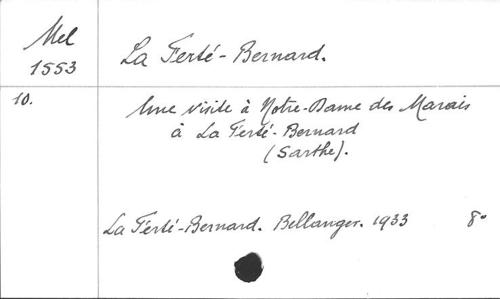 Mel
1553
La Ferté-Bernard.
10.
Une visite à Notre-Dame des Marais
à La Ferté-Bernard
(Sarthe).
La Ferté-Bernard. Bellanger. 1933 8°